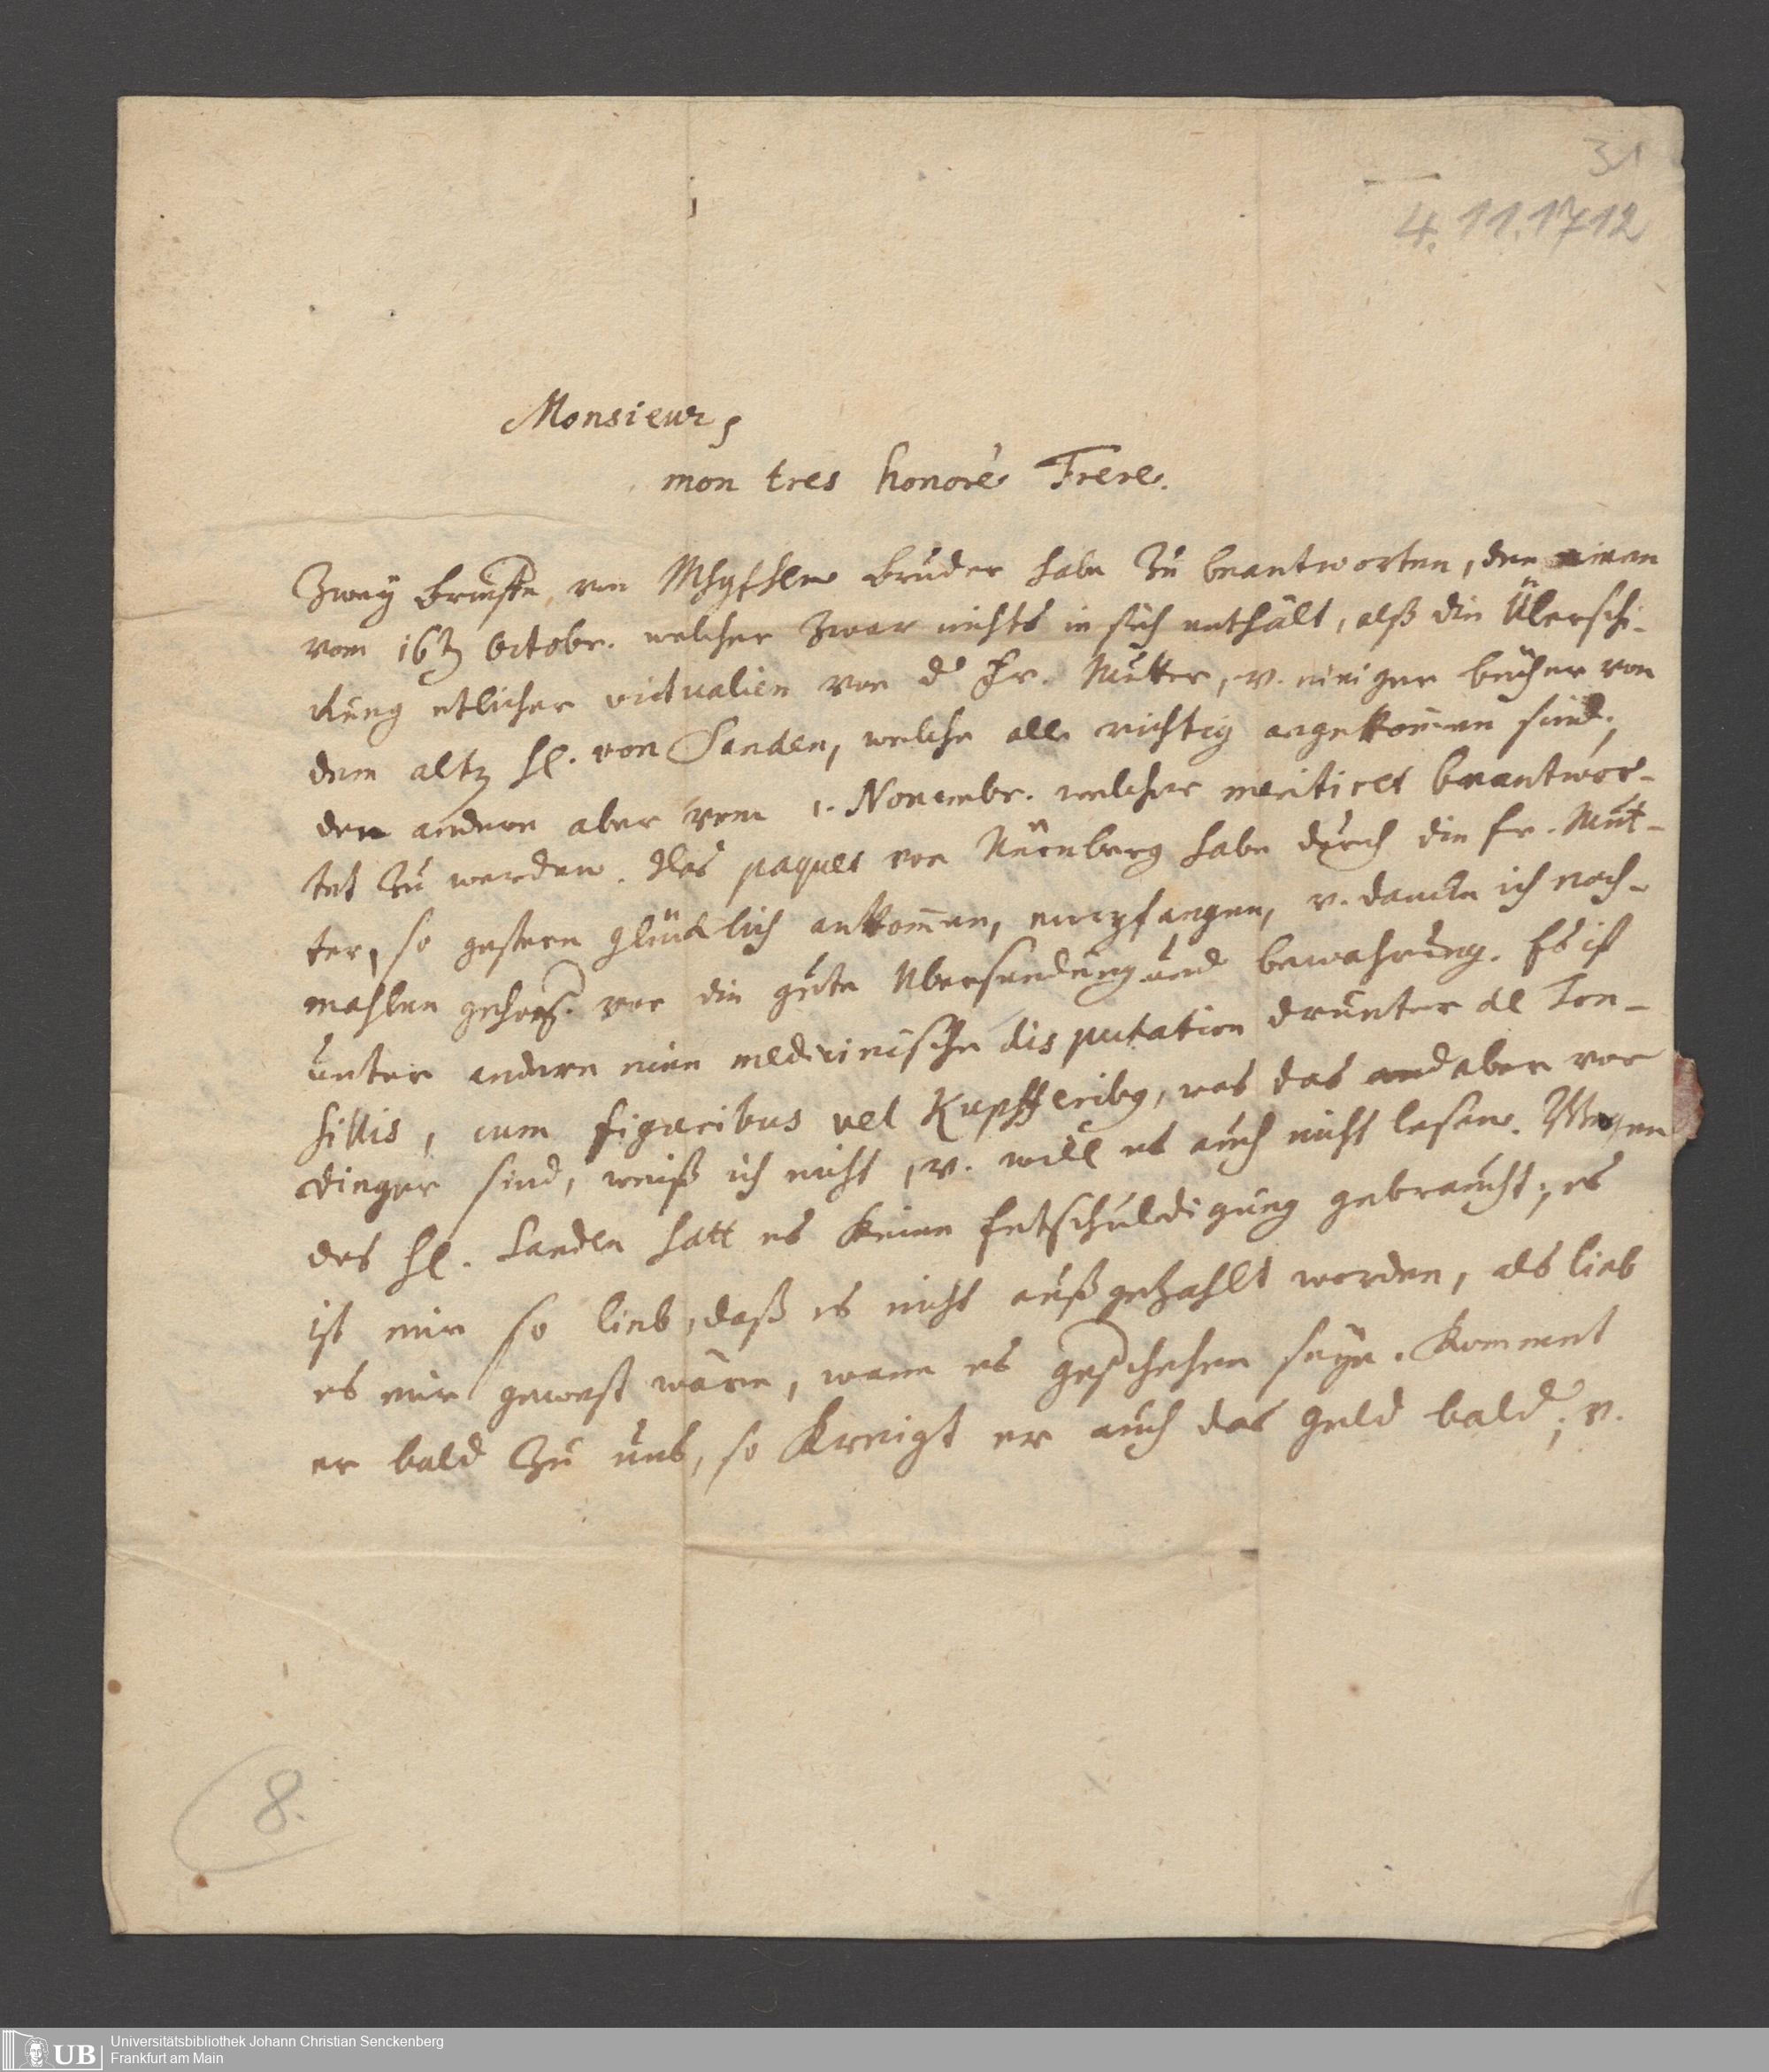 31
4. 11. 1712
Monsieur,
mon tres honoré Frere.
Zwey brieffe, von Mhgh Hern bruder habe zu beantworten, den einen
vom 16tn Octobr. welcher zwar nichts in sich enthält, alß die Überschi-
ckung etlicher victualien von d Fr. Mutter, v. einiger bücher von
dem altn Hl. von Sanden, welche alle richtig angekom̄en sind;
den andern aber vom 1. Novembr. welcher meritiret beantwor-
tet zu werden. Das paquet von Nürnberg habe durch die fr. Mut-
ter, so gestern glücklich ankom̄en, empfangen, v. dancke ich noch-
mahlen gehors. vor die gute Übersendung und bewahrung. Es ist
unter andern eine medicinische disputation drunter de Ton-
sillis, cum figuribus vel Kupfferibg, was das aber vor
dinger sind, weiß ich nicht, v. will es auch nicht lesen. Wegen
des Hl. Sanden hatt es keine Entschuldigung gebraucht; es
ist mir so lieb, daß es nicht außgezahlt worden, als lieb
es mir gewest wäre, wann es geschehen seye. Kommet
er bald zu uns, so kreigt er auch das geld bald; v.
8.
UB
Universitätsbibliothek Johann Christian Senckenberg
Frankfurt am Main